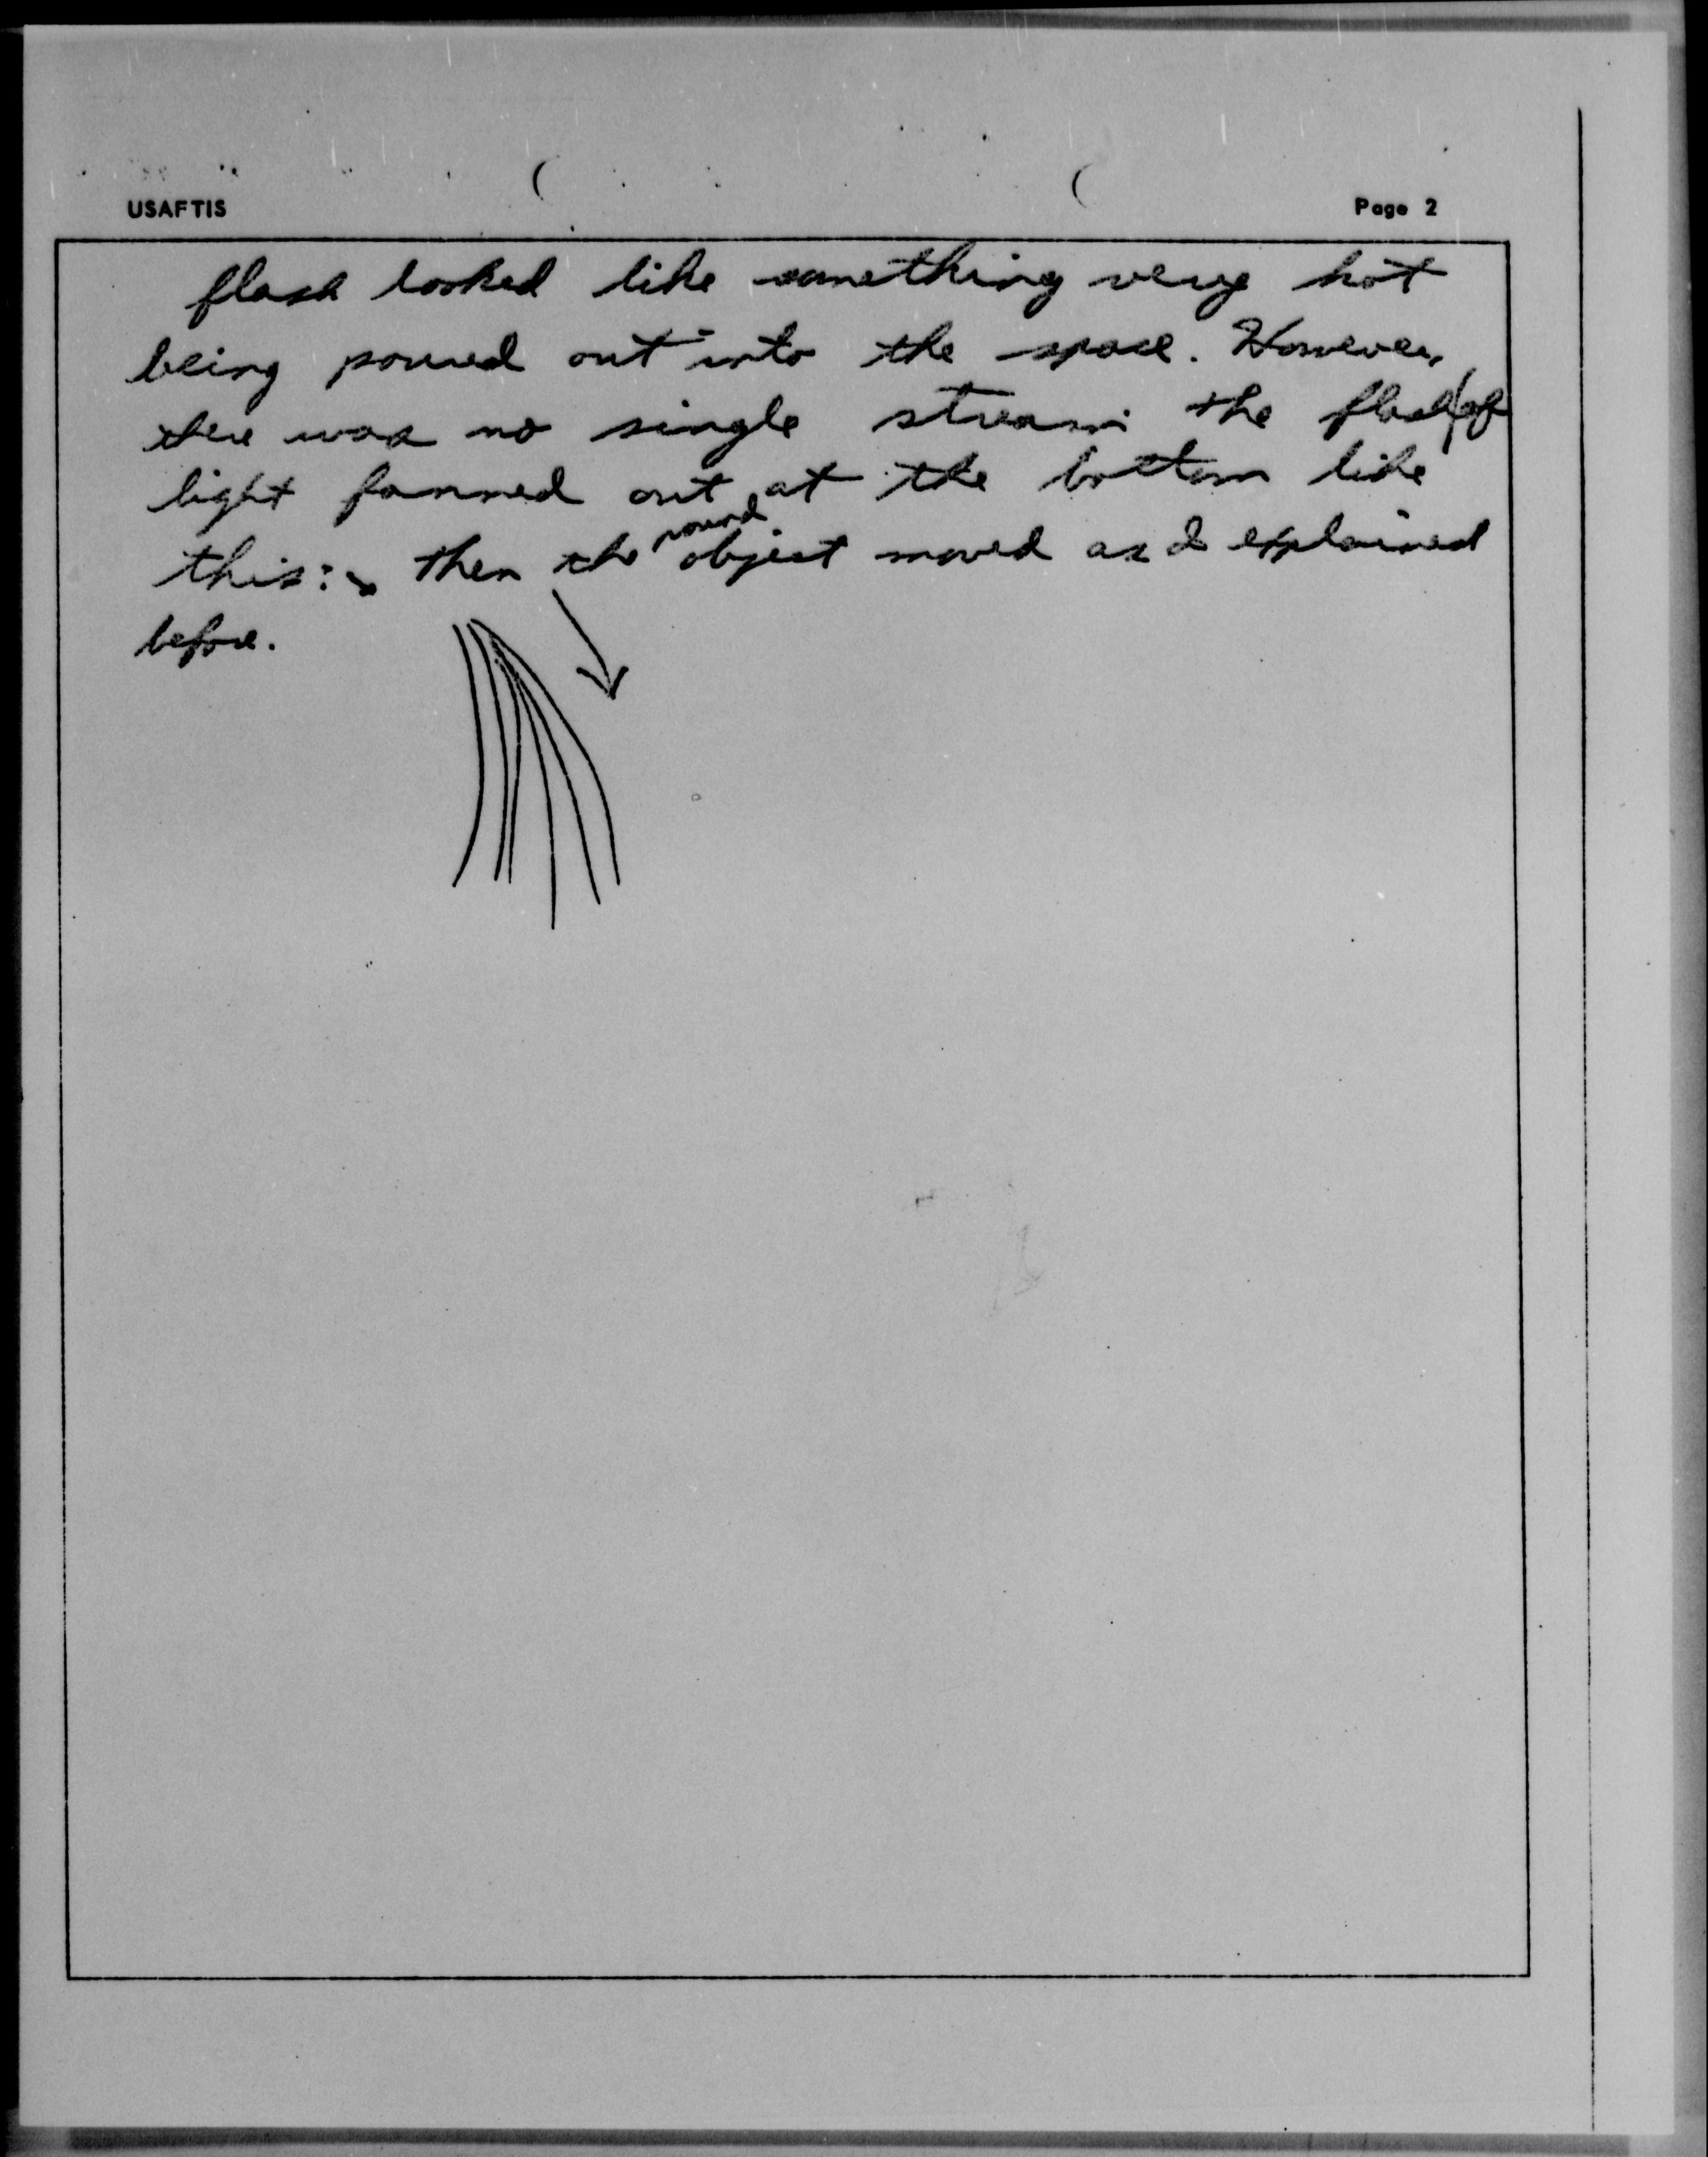 USAFTIS
Page 2
flash looked like something very hot
being poured out into the space. However,
there was no single stream the flash of
light fanned out at the bottom like
this: then the round object moved as I explained
before.